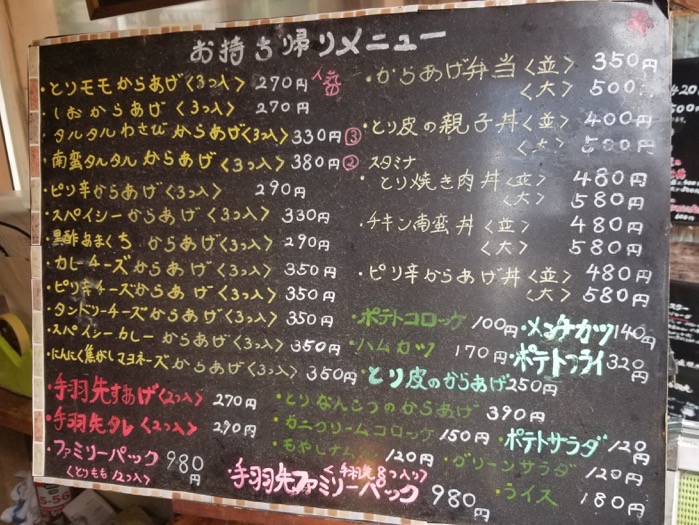 お持ち帰りメニュー
・とりモモからあげ〈3つ入〉 270円 人気
・しおからあげ〈3つ入〉 270円
・タルタルわさびからあげ〈3つ入〉 330円 ③
・南蛮タルタルからあげ〈3つ入〉 380円 ②
・ピリ辛からあげ〈3つ入〉 290円
・スパイシーからあげ〈3つ入〉 330円
・黒酢あまくちからあげ〈3つ入〉 290円
・カレーチーズからあげ〈3つ入〉 350円
・ピリ辛チーズからあげ〈3つ入〉 350円
・タンドリーチーズからあげ〈3つ入〉 350円
・スパイシーカレーからあげ〈3つ入〉 350円
・にんにく焦がしマヨネーズからあげ〈3つ入〉 350円
・手羽先すあげ〈2つ入〉 270円
・手羽先タレ〈2つ入〉 290円
・ファミリーパック 980円
〈とりもも12つ入〉
・からあげ弁当〈並〉 350円
〈大〉 500
・とり皮の親子丼〈並〉 400円
〈大〉 500円
スタミナ
・とり焼き肉丼〈並〉 480円
〈大〉 580円
・チキン南蛮丼〈並〉 480円
〈大〉 580円
・ピリ辛からあげ丼〈並〉 480円
〈大〉 580円
・ポテトコロッケ 100円 ・メンチカツ 140円
・ハムカツ 170円 ・ポテトフライ 320円
・とり皮のからあげ 250円
・とりなんこつのからあげ 390円
・カニクリームコロッケ 150円 ・ポテトサラダ 120円
・もやしナムル 120円 ・グリーンサラダ 120円
〈手羽先8つ入り〉
・手羽先ファミリーパック 980円 ・ライス 180円